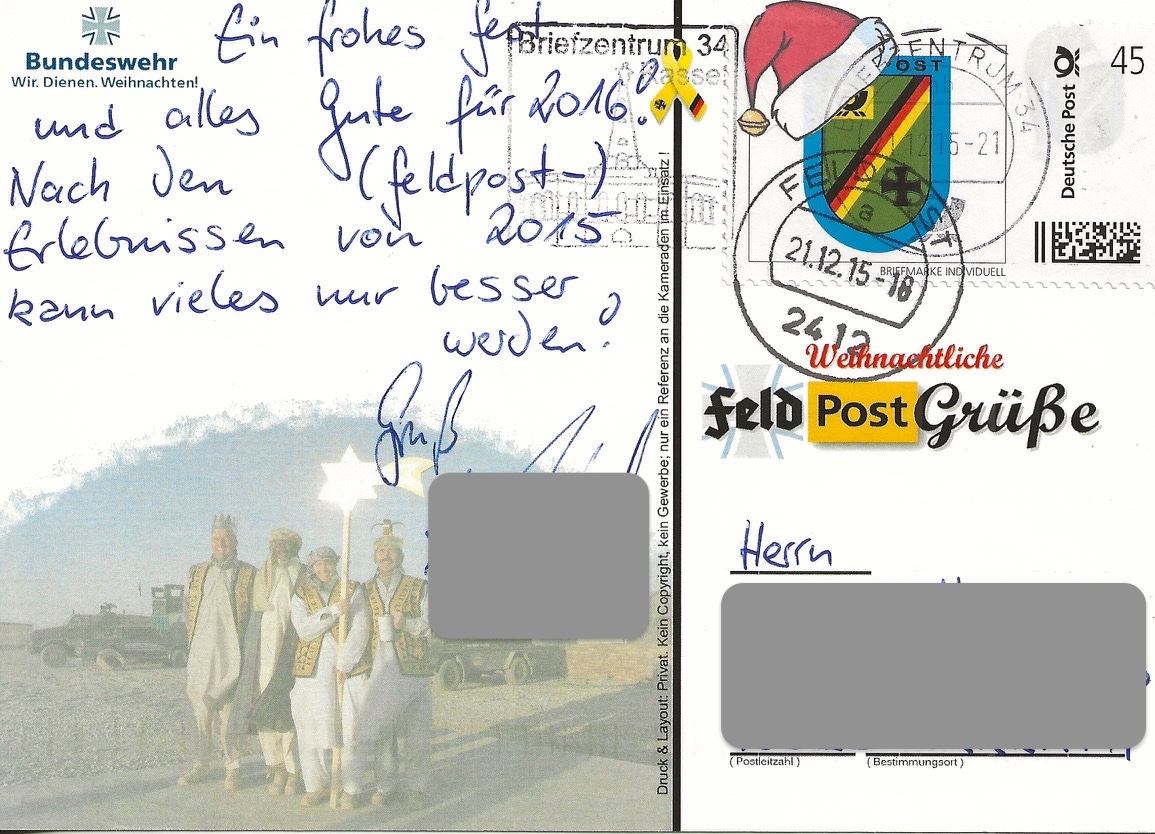 Bundeswehr
Wir. Dienen. Weihnachten!
Ein frohes Fest
und alles Gute für 2016!
Nach den (Feldpost-)
Erlebnissen von 2015
kann vieles nur besser
werden!
Gruß
Druck & Layout: Privat. Kein Copyright, kein Gewerbe; nur ein Referenz an die Kameraden im Einsatz !
Briefzentrum 34
POST
BRIEFZENTRUM 34
-21
Deutsche Post
45
BRIEFMARKE INDIVIDUELL
FELDPOST
a
21.12.15-18
Weihnachtliche
Feld Post Grüße
Herrn
( Postleitzahl )
( Bestimmungsort )